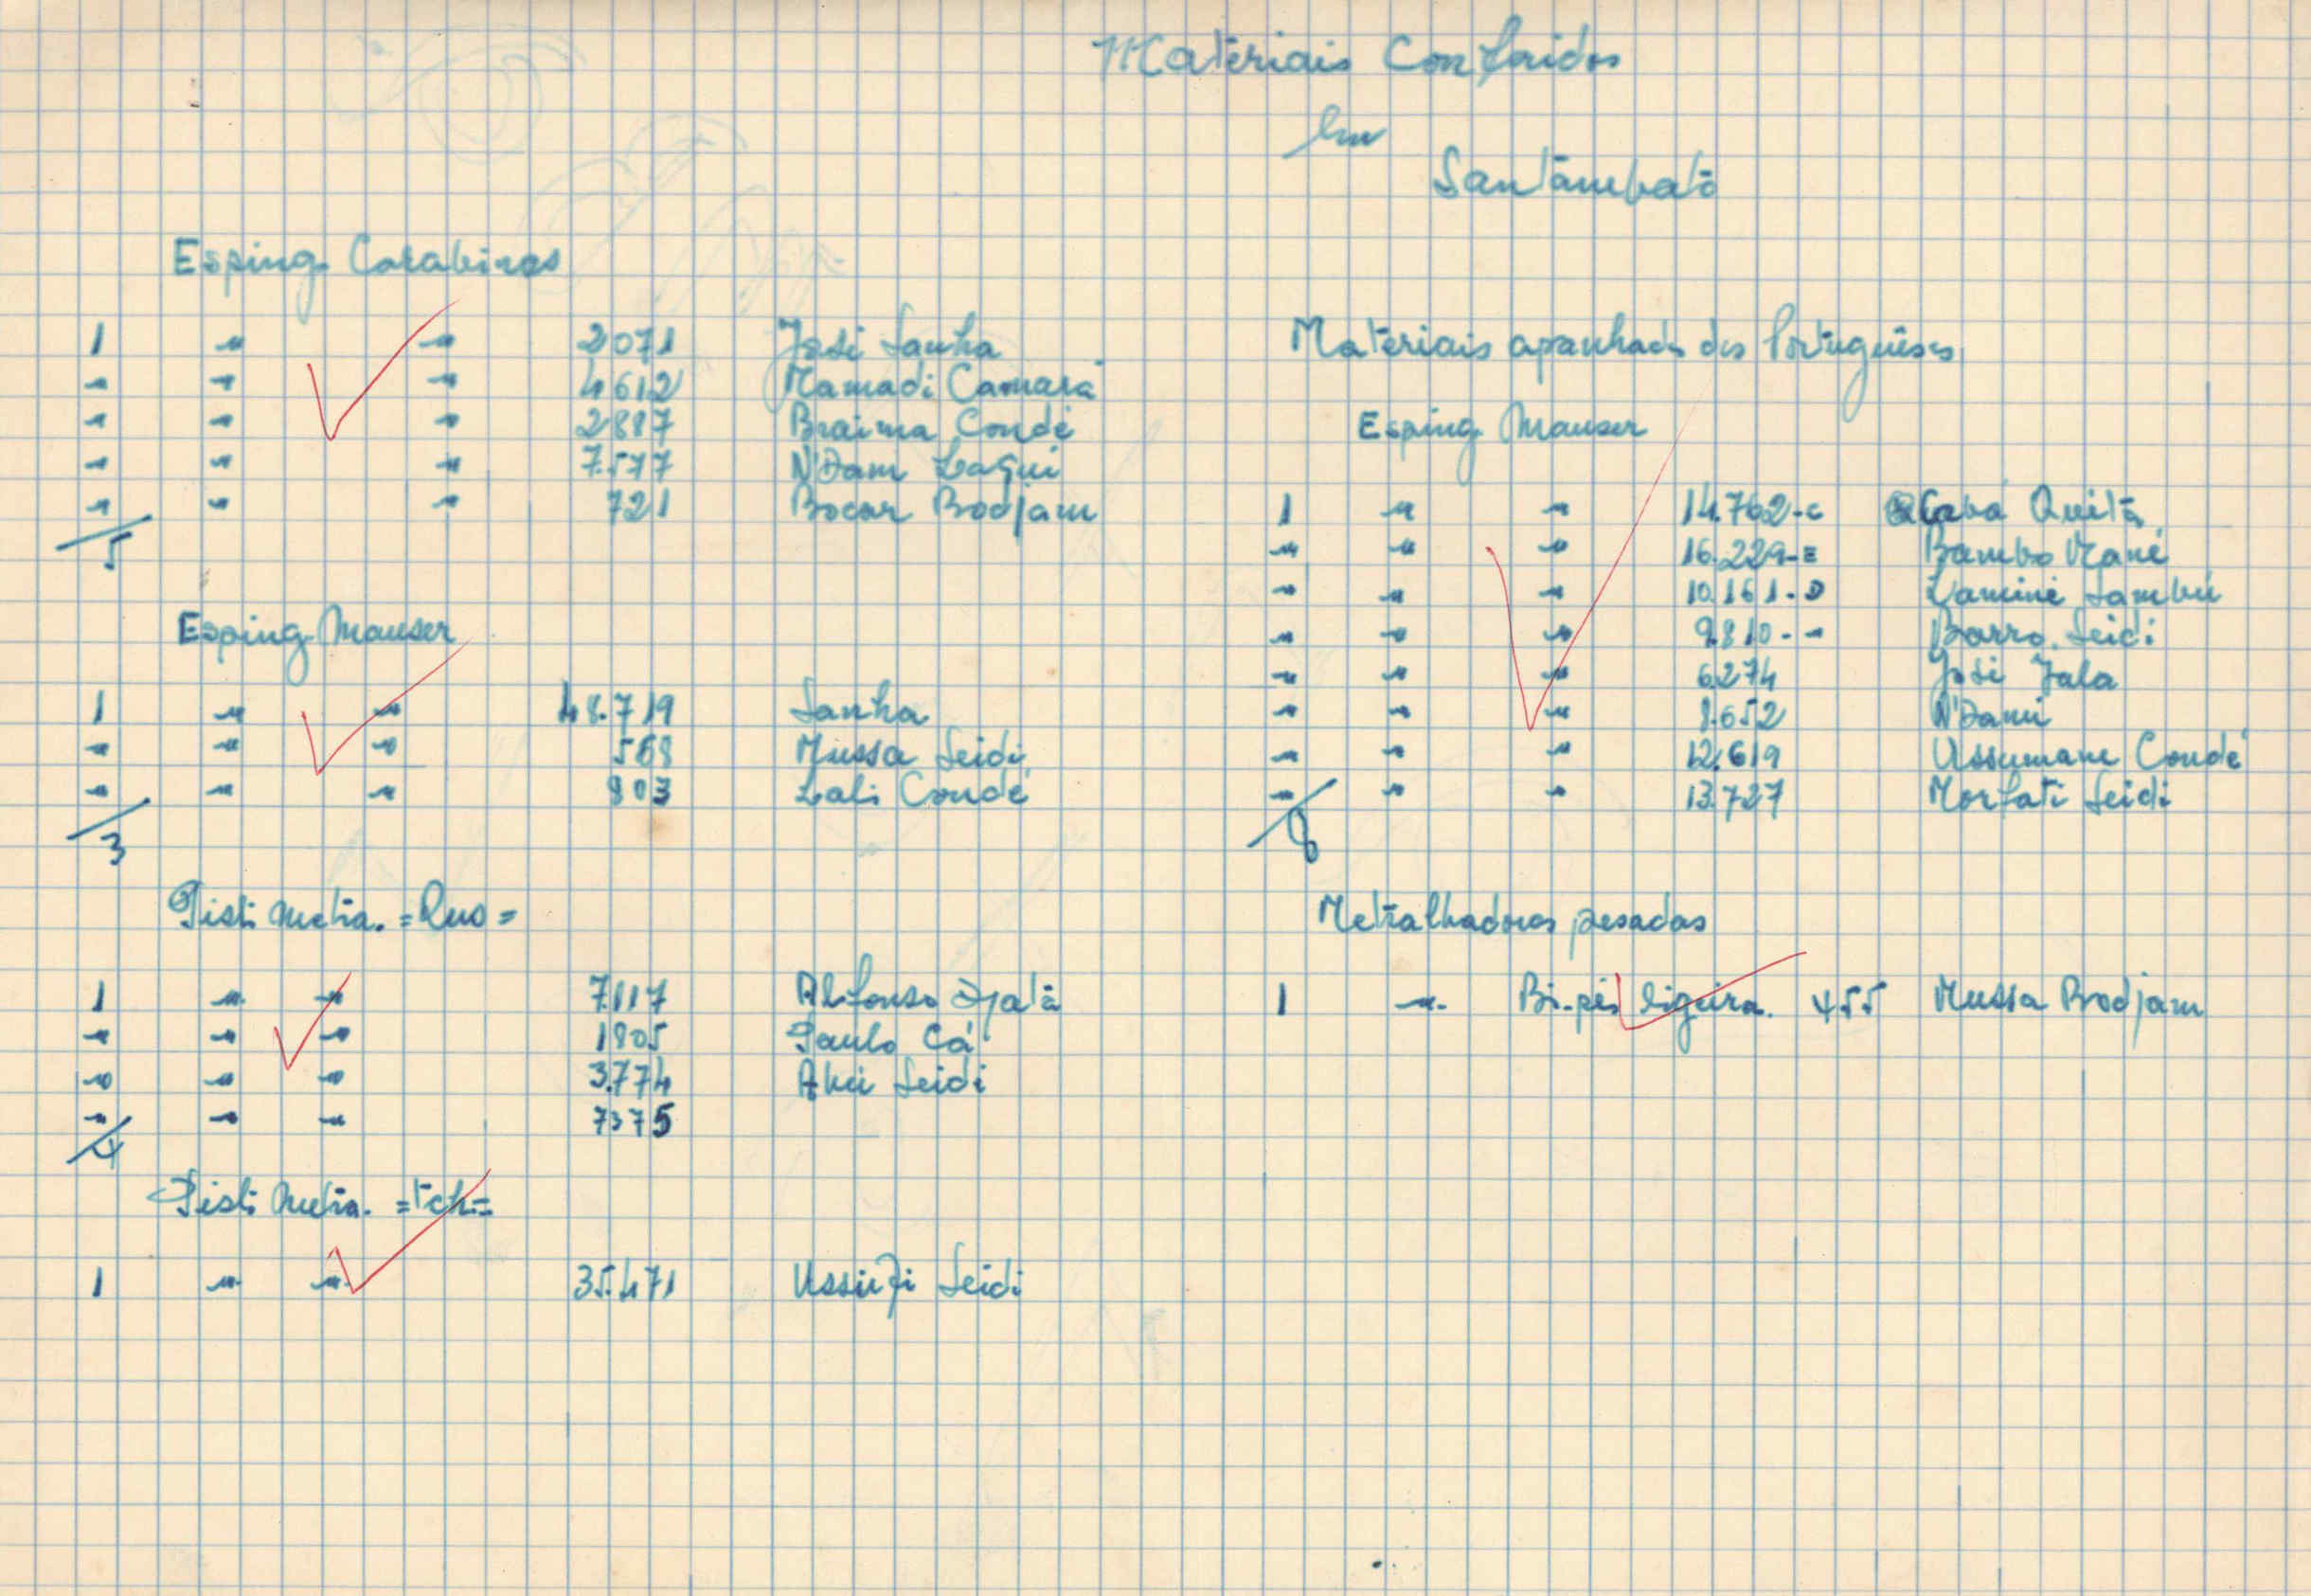 Materiais Conferidos
Em
Santâmbatô
Esping. Carabinas
1 " " 2071 José Sanha
" " " 4612 Mamadi Camará
" " " 2887 Braima Condé
" " " 7.577 N'Dam
" " " 721 Bocar Bodjam
5
Esping. Mauser
1 " " 48.719 Sanha
" " " 568 Mussa Seidi
" " " 903 Lali Condé
3
Pist: metra. = Rus =
1 " " 7.117 Alfonso Djatá
" " " 1805 Paulo Cá
" " " 3.774 Seidi
" " " 7375
4
Pist: metra. = Tch. =
1 " " 35.471 Seidi
Materiais apanhados dos Portuguêses
Esping. Mauser
1 " " 14.762-c Caba Quitá
" " " 16.229-E Bambo Mané
" " " 10.161-D Lamine Sambú
" " " 9.810-" Barro. Seidi
" " " 6.274 José Jala
" " " 8.652 N'Dami
" " " 12.619 Ussumane Condé
" " " 13.727 Morfati Seidi
8
Metralhadoras pesadas
1 " Bi-pés ligeira. 455 Mussa Bodjam